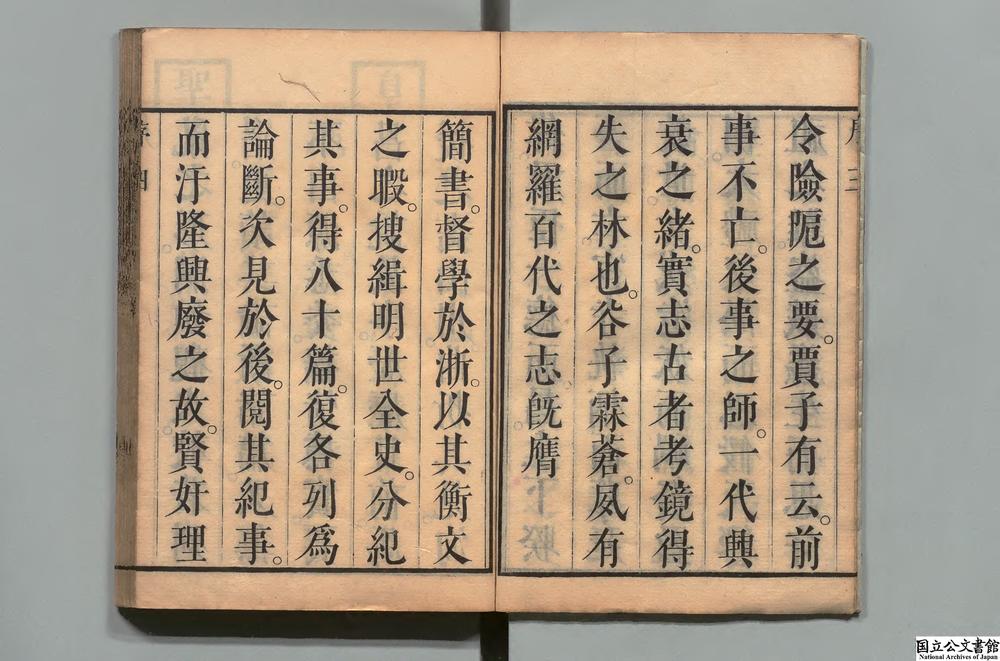 令險阨之要。賈子有云。前
事不亡。後事之師。一代興
衰之緒。實志古者考鏡得
失之林也。谷子霖蒼。夙有
網羅百代之志。旣膺
簡書。督學於浙。以其衡文
之暇。搜緝明世全史。分紀
其事。得八十篇。復各列爲
論斷。次見於後。閱其紀事。
而汙隆興廢之故。賢奸理
序
三
序
四
国立公文書館
National Archives of Japan